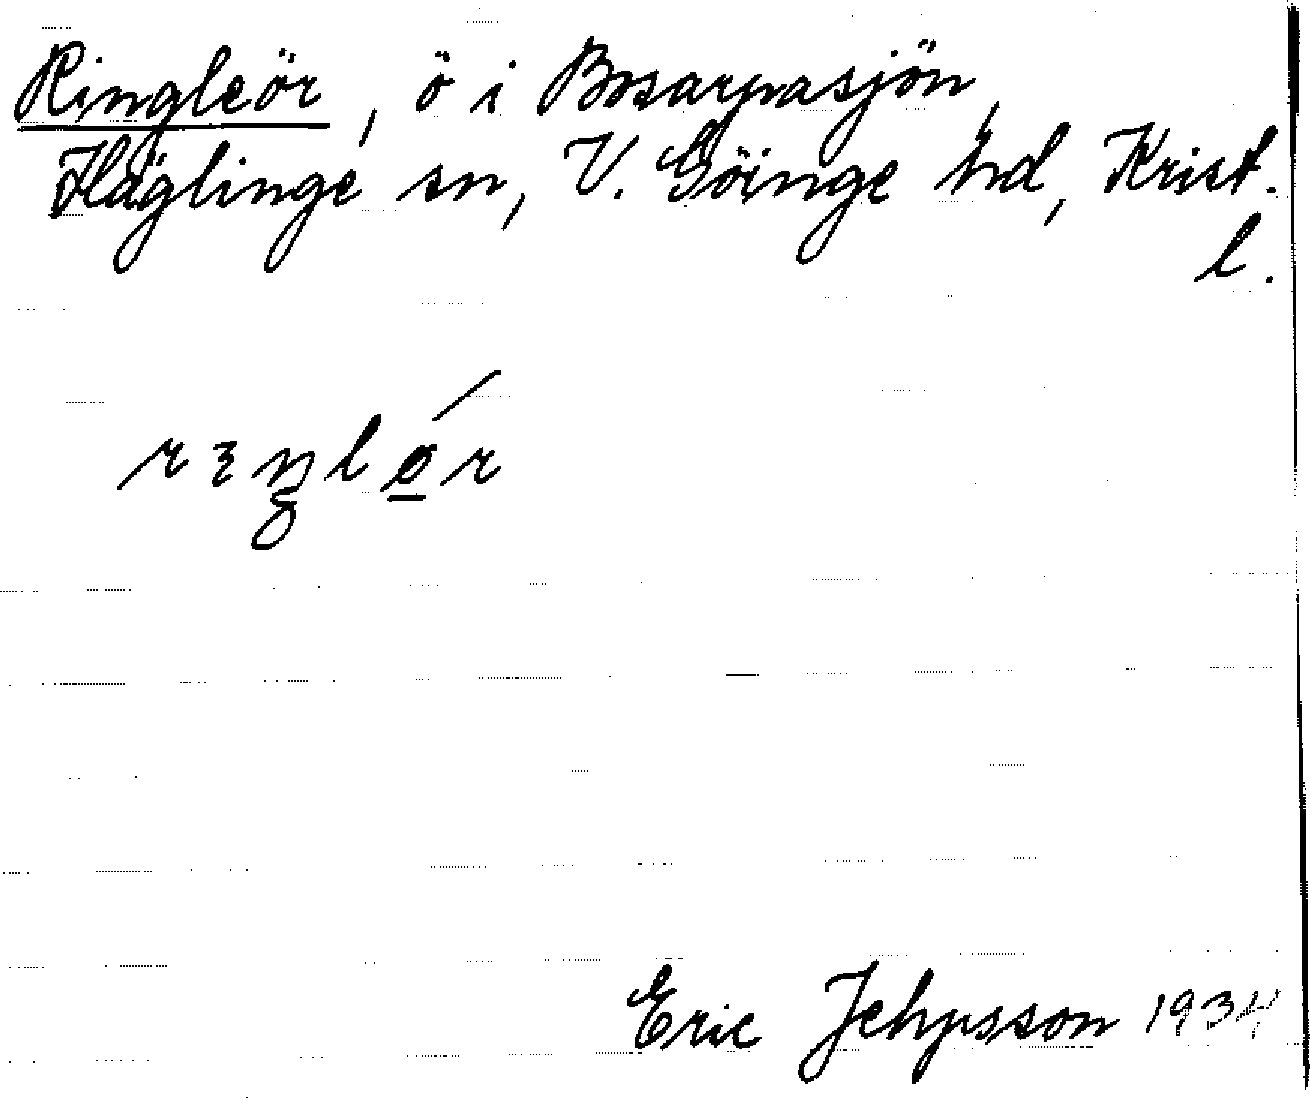 Ringleör, ö i Bosarpasjön,
Häglinge sn, V. Göinge hd, Krist.
l.
Eric Jehpsson 1934